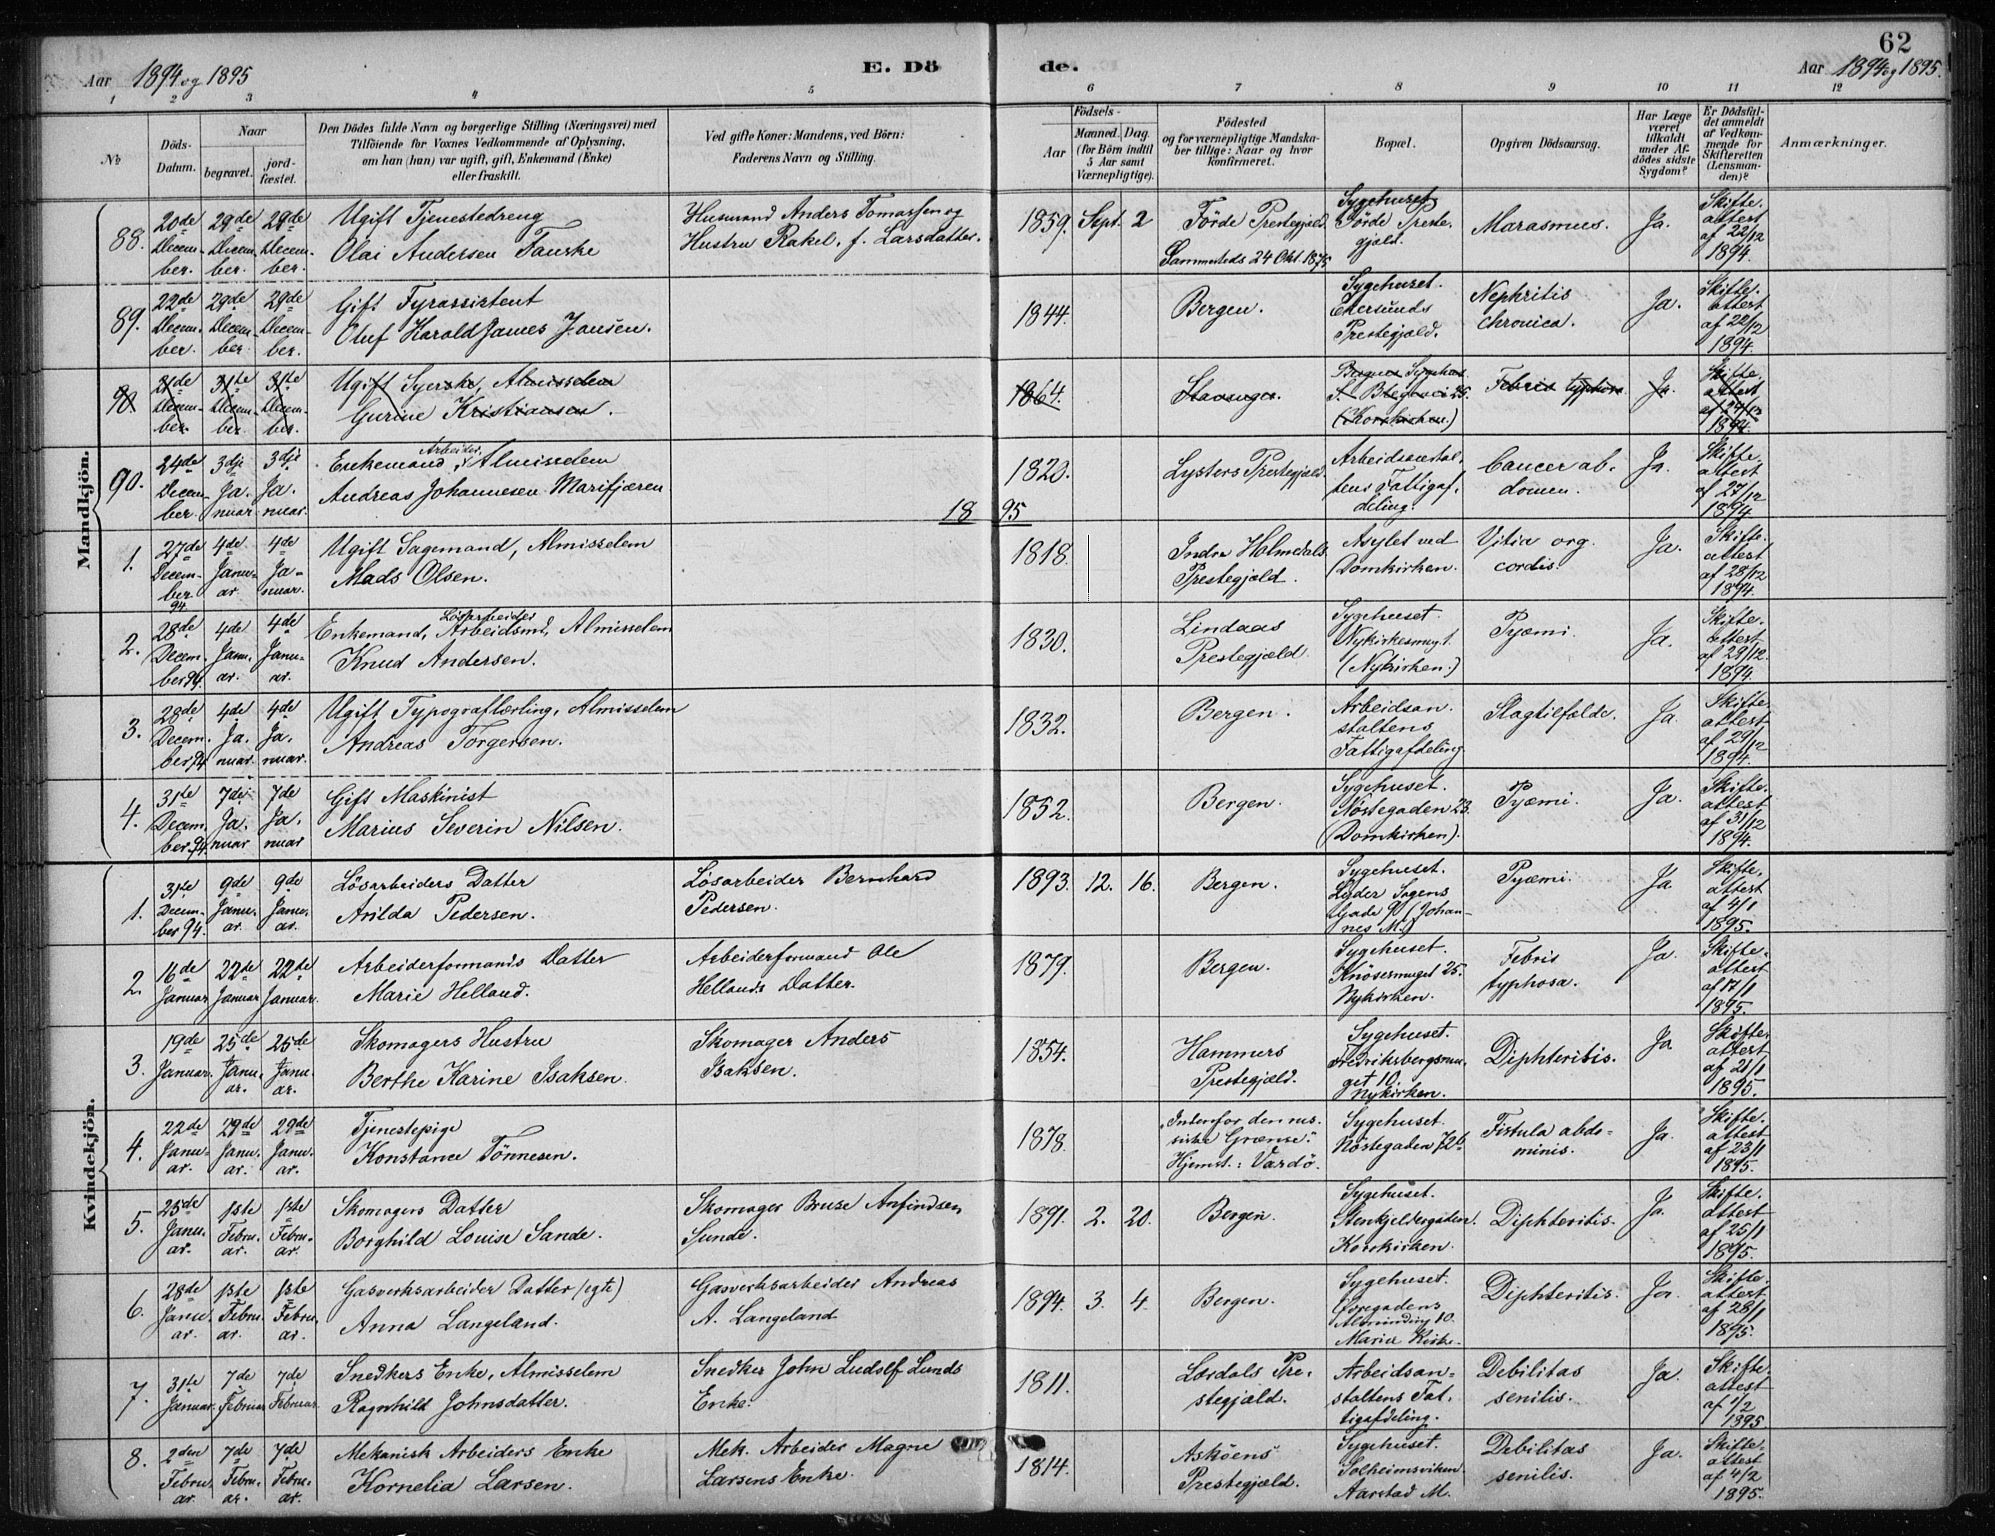 62
Aar 1894 og 1895
E. Dö
de.
Aar 1894 og 1895.
1 2 3 4 5 6 7 8 9 10 11 12
No
Döds-Datum.
Naar
begravet.
jord-fæstet.
Den Dödes fulde Navn og borgerlige Stilling (Næringsvei) med
Tilföiende for Voxnes Vedkommende af Oplysning,
om han (hun) var ugift, gift, Enkemand (Enke)
eller fraskilt.
Ved gifte Koner: Mandens, ved Börn:
Faderens Navn og Stilling.
Födsels-
Aar
Maaned. Dag.
(for Börn indtil
5 Aar samt
Værnepligtige).
Födested
og for værnepligtige Mandska-
ber tillige: Naar og hvor
konfirmeret.
Bopæl.
Opgiven Dödsaarsag.
Har Læge
været
tilkaldt
under Af-
dödes sidste
Sygdom?
Er Dödsfal-
det anmeldt
af Vedkom-
mende for
Skifteretten
(Lensman-
den)?
Anmærkninger.
Mandkjön.
88.
20de Decem-ber.
29de Decem-ber.
29de Decem-ber.
Ugift Tjenestedreng
Olai Andersen Fauske
Husmand Anders Tomassen og
Hustru Rakel, f. Larsdatter.
1859. Sept. 2
Förde Prestegjæld.
Sammesteds 24 Okt. 1875
Sygehuset
Förde Preste-
gjæld.
Marasmus.
Ja.
Skifte-
attest
af 22/12
1894.
89.
22de Decem-ber.
29de Decem-ber.
29de Decem-ber.
Gift Fyrassistent
Oluf Harold James Jansen.
1844.
Bergen.
Sygehuset.
Ekersunds
Prestegjæld.
Nephritis
chronica.
Ja.
Skifte-
attest
af 22/12
1894.
90
21de Decem-ber.
31te Decem-ber.
31te Decem-ber.
Ugift Syerske, Almisselem
Gurine Kristiansen.
1864.
Stavanger.
(Korskirken.)
Febris typhosa
Ja.
Skifte-
attest
af 24/12
1894
90.
24de Decem-ber.
3dje Ja-nuar
3dje Ja-nuar.
Arbeider,
Enkemand, Almisselem
Andreas Johannesen Marifjæren
1820.
Lysters Prestegjæld.
Arbeidsanstal-
tens Fattigaf-
deling.
Cancer ab-
domen.
Ja.
Skifte-
attest
af 27/12
1894
18 95
1.
27de Decem-ber 94
4de Janu-ar
4de Ja-nuar.
Ugift Sagemand, Almisselem
Mads Olsen.
1818.
Indre Holmedals
Prestegjæld.
Asylet ved
Domkirken.
Vitia org.
cordis.
Ja.
Skifte-
attest
af 28/12
1894.
2.
28de Decem-ber 94.
4de Janu-ar.
4de Janu-ar
Lösarbeider
Enkemand, Arbeidsmd, Almisselem
Knud Andersen.
1830.
Lindaas
Prestegjæld.
Sygehuset.
Nykirkesmugt.
(Nykirken.)
Pyæmi.
Ja.
Skifte-
attest
af 29/12.
1894.
3.
28de Decem-ber 94
4de Ja-nuar.
4de Ja-nuar.
Ugift Typograflærling, Almisselem
Andreas Torgersen.
1832.
Bergen.
Arbeidsan-
staltens
Fattigafdeling
Slagtilfælde.
Ja.
Skifte-
attest
af 29/12
1894.
4.
31te Decem-ber 94.
7de Ja-nuar
7de Ja-nuar
Gift Maskinist
Marius Severin Nilsen.
1852.
Bergen.
Sygehuset.
Nöstegaden 23.
(Domkirken).
Pyæmi.
Ja.
Skifte-
attest
af 31/12
1894.
Kvindekjön.
1.
31te Decem-ber 94.
9de Janu-ar.
9de Janu-ar.
Lösarbeiders Datter
Arilda Pedersen.
Lösarbeider Bernhard
Pedersen.
1893. 12. 16.
Bergen.
Sygehuset.
Lyder Sagens
Gade 9 (Johan-
nes M.)
Pyæmi.
Ja
Skifte-
attest
af 4/1
1895.
2.
16de Januar
22de Januar
22de Januar.
Arbeiderformands Datter
Marie Helland.
Arbeiderformand Ole
Hellands Datter.
1879.
Bergen.
Sygehuset.
Knösesmuget 25.
Nykirken.
Febris
typhosa.
Ja.
Skifte-
attest
af 17/1
1895.
3.
19de Januar.
25de Janu-ar.
25de Janu-ar.
Skomagers Hustru
Berthe Karine Isaksen.
Skomager Anders
Isaksen.
1854.
Hammers
Prestegjæld.
Sygehuset.
Fredriksbergsmu-
get 10.
Nykirken.
Diphteritis.
Ja
Skifte-
attest
af 21/1
1895.
4.
22de Janu-ar.
29de Janu-ar.
29de Janu-ar.
Tjenestepige
Konstance Tönnesen.
1878.
"Indenfor den rus-
siske Grænse".
Hjemst.: Vardö.
Sygehuset.
Nöstegaden 72b
Fistula abdo-
minis.
Ja.
Skifte-
attest
af 23/1
1895.
5.
25de Janu-ar.
1ste Febru-ar.
1ste Febru-ar.
Skomagers Datter
Borghild Louise Sande.
Skomager Bruse Anfindsen
Sunde.
1891. 2. 20.
Bergen.
Sygehuset.
Stenkjeldergaden.
Korskirken.
Diphteritis.
Ja.
Skifte-
attest
af 25/1
1895.
6.
28de Janu-ar.
1ste Febru-ar.
1ste Febru-ar.
Gasverksarbeider Datter (egte)
Anna Langeland.
Gasverksarbeider Andreas
A. Langeland
1894. 3. 4.
Bergen.
Sygehuset.
Övregadens
Alminding 10.
Maria Kirke.
Diphteritis.
Ja.
Skifte-
attest
af 28/1
1895.
7.
31te Januar.
7de Februar
7de Februar.
Snedkers Enke, Almisselem
Ragnhild Johnsdatter.
Snedker John Ludolf Lunds
Enke.
1811.
Lærdals Pre-
stegjæld.
Arbeidsan-
staltens Fat-
tigafdeling.
Debilitas
senilis.
Ja.
Skifte-
attest
af 1/2
1895
8.
2den Febru-ar.
7de Febru-ar.
7de Febru-ar.
Mekanisk Arbeiders Enke
Kornelia Larsen.
Mek. Arbeider Magne
Larsens Enke.
1814.
Asköens
Prestegjæld.
Sygehuset.
Solheimsviken
Aarstad M.
Debilitas
senilis.
Ja.
Skifte-
attest
af 4/2
1895.